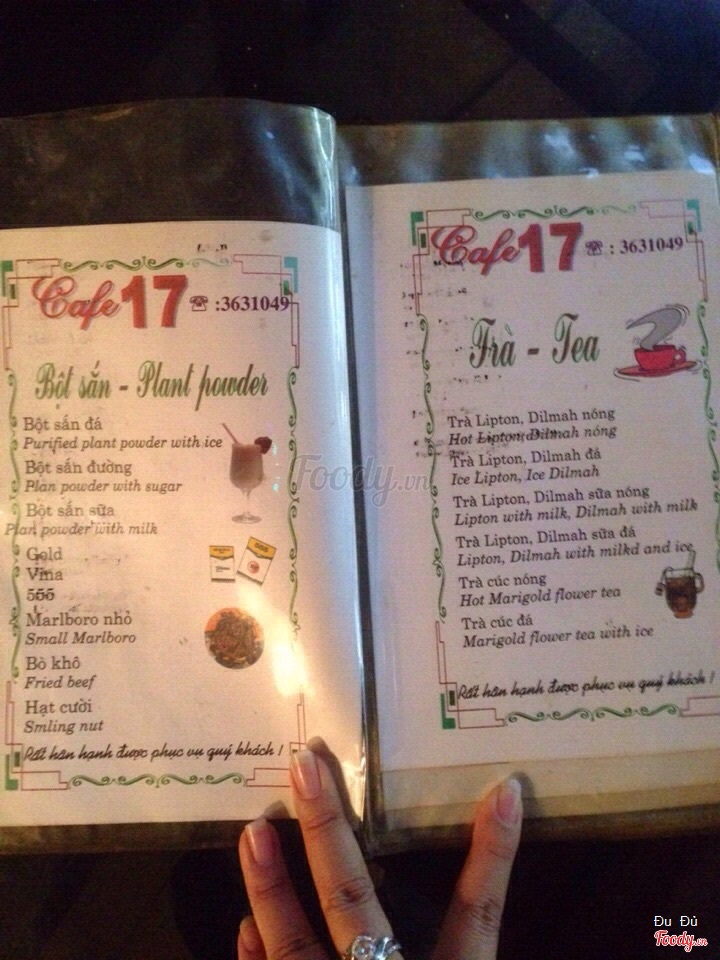 Cafe 17 ☎ :3631049
Bột sắn - Plant powder
Bột sắn đá
Purified plant powder with ice
Bột sắn đường
Plan powder with sugar
Bột sắn sữa
Plan powder with milk
Gold
Vina
555
Marlboro nhỏ
Small Marlboro
Bò khô
Fried beef
Hạt cười
Smling nut
Rất hân hạnh được phục vụ quý khách !
Cafe 17 ☎ : 3631049
Trà - Tea
Trà Lipton, Dilmah nóng
Hot Lipton, Dilmah nóng
Trà Lipton, Dilmah đá
Ice Lipton, Ice Dilmah
Trà Lipton, Dilmah sữa nóng
Lipton with milk, Dilmah with milk
Trà Lipton, Dilmah sữa đá
Lipton, Dilmah with milkd and ice
Trà cúc nóng
Hot Marigold flower tea
Trà cúc đá
Marigold flower tea with ice
Rất hân hạnh được phục vụ quý khách !
Foody.vn
Đu Đủ
Foody.vn